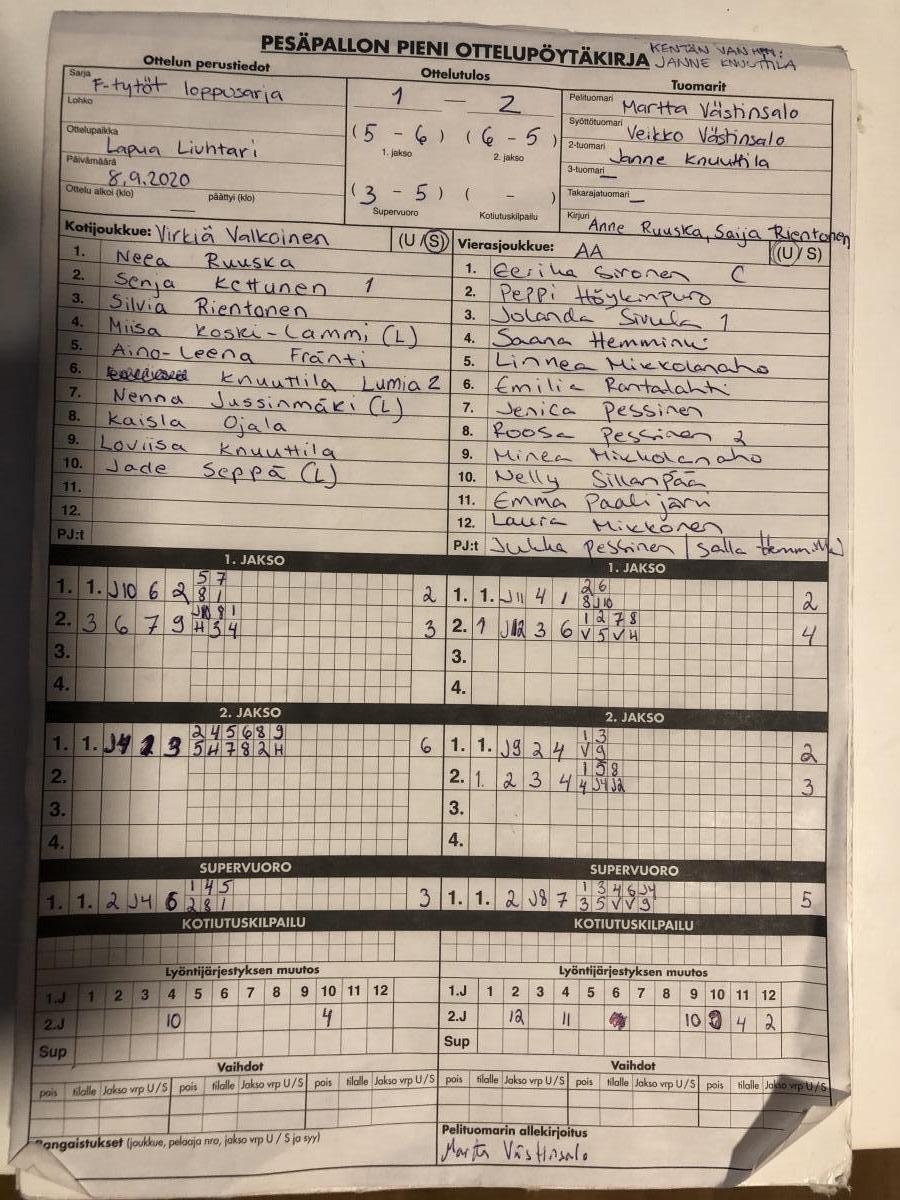 PESÄPALLON PIENI OTTELUPÖYTÄKIRJA
KENTÄN VANHIN:
JANNE KNUUTTILA
Ottelun perustiedot
Sarja
F-tytöt loppusarja
Lohko
Ottelupaikka
Lapua Liuhtari
Päivämäärä
8.9.2020
Ottelu alkoi (klo) — päättyi (klo)
Ottelutulos
1 — 2
(5 - 6) (6 - 5)
1. jakso 2. jakso
(3 - 5) ( - )
Supervuoro Kotiutuskilpailu
Tuomarit
Pelituomari Martta Västinsalo
Syöttötuomari Veikko Västinsalo
2-tuomari Janne Knuuttila
3-tuomari —
Takarajatuomari —
Kirjuri Anne Ruuska, Saija Rientonen
Kotijoukkue: Virkiä Valkoinen (U/S)
1. Neea Ruuska
2. Senja Kettunen 1
3. Silvia Rientonen
4. Miisa Koski-Lammi (L)
5. Aino-Leena Fränti
6. Knuuttila Lumia 2
7. Nenna Jussinmäki (L)
8. Kaisla Ojala
9. Loviisa Knuuttila
10. Jade Seppä (L)
11.
12.
PJ:t
Vierasjoukkue: AA (U/S)
1. Eerika Sironen C
2. Peppi Höykinpuro
3. Jolanda Sivula 1
4. Saana Hemminki
5. Linnea Mikkolanaho
6. Emilia Rantalahti
7. Jenica Pessinen
8. Roosa Pessinen 2
9. Minea Mikkolanaho
10. Nelly Sillanpää
11. Emma Paalijärvi
12. Laura Mikkonen
PJ:t Jukka Pessinen | Salla Hemminki
1. JAKSO
1. 1. J10 6 2 5 7 2
8 1
2. 3 6 7 9 8 1 3
H 3 4
3.
4.
1. JAKSO
1. 1. J11 4 1 2 6 2
8 J10
2. 1 J12 3 6 1 2 7 8 4
V 5 V H
3.
4.
2. JAKSO
1. 1. J4 2 3 2 4 5 6 8 9 6
5 H 7 8 2 H
2.
3.
4.
2. JAKSO
1. 1. J9 2 4 1 3 2
V 9
2. 1. 2 3 4 1 5 8 3
4 J4 J2
3.
4.
SUPERVUORO
1. 1. 2 J4 6 1 4 5 3
2 8 1
SUPERVUORO
1. 1. 2 J8 7 1 3 4 6 J4 5
3 5 V V 9
KOTIUTUSKILPAILU
KOTIUTUSKILPAILU
Lyöntijärjestyksen muutos
1.J 1 2 3 4 5 6 7 8 9 10 11 12
2.J 10 4
Sup
Lyöntijärjestyksen muutos
1.J 1 2 3 4 5 6 7 8 9 10 11 12
2.J 12 11 10 4 2
Sup
Vaihdot
pois tilalle Jakso vrp U/S pois tilalle Jakso vrp U/S pois tilalle Jakso vrp U/S
Vaihdot
pois tilalle Jakso vrp U/S pois tilalle Jakso vrp U/S pois tilalle Jakso vrp U/S
Rangaistukset (joukkue, pelaaja nro, jakso vrp U / S ja syy)
Pelituomarin allekirjoitus
Martta Västinsalo